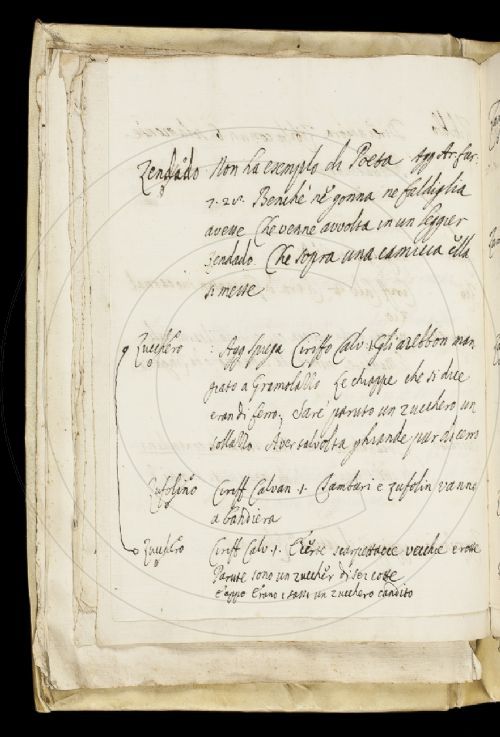 Zendado Non ha esempio di Poeta Agg Ar. fur.
7. 28. Benché ne gonna ne faldiglia
avesse Che venne avvolta in un leggier
zendado. Che sopra una camicia ella
si messe
Zucchero Agg spesa Ciriffo Calv. 1 Gli arebbon man
giato a Gramolallo Le chiappe che si dice
eran di ferro; Saré paruto un zucchero un
sollallo. Aver talvolta ghiande pur di cerro
Zufolino Ciriff Calvan. 1. Tamburi e zufolin vanne
a bandiera
Zucchero Ciriff Calv. 1. Certe scarpettacce vecchie e rotte
Parute sono un zuccher di sei cotte
E appo Erano i sassi un zucchero candito